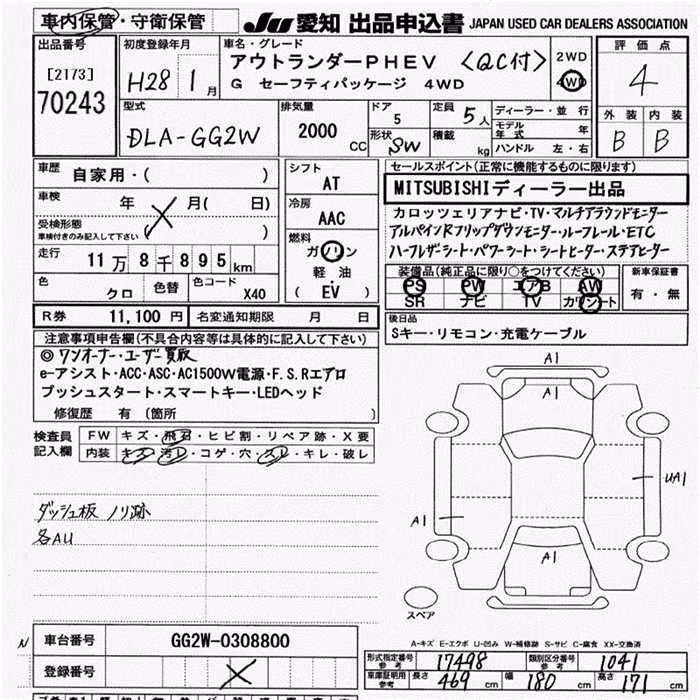 車内保管・守衛保管
JU 愛知 出品申込書 JAPAN USED CAR DEALERS ASSOCIATION
出品番号
[2173]
70243
初度登録年月
H28 1月
車名・グレード
アウトランダーPHEV 〈QC付〉
G セーフティパッケージ 4WD
2WD
4WD
評価点
4
外装 内装
B B
型式
DLA-GG2W
排気量
2000 CC
ドア
5
形状 SW
定員 5人
積載 kg
ディーラー・並行
モデル年式 年
ハンドル 左・右
車歴
自家用・( )
車検 年 月( 日)
受検形態
(車検付きのみ記入して下さい) ( )
走行 11万8千895km
色 クロ 色替 色コード X40
シフト
AT
冷房
AAC
燃料
ガソリン
軽油
( EV )
セールスポイント(正常に機能するものに限ります)
MITSUBISHIディーラー出品
カロッツェリアナビ・TV・マルチアラウンドモニター
アルパインRフリップダウンモニター・ルーフレール・ETC
ハーフレザーシート・パワーシート・シートヒーター・ステアヒーター
装備品(純正品に限り○をつけてください)
PS PW エアB AW
SR ナビ TV カワシート
新車保証書
有・無
R券 11,100円 名変通知期限 月 日
後日品
Sキー・リモコン・充電ケーブル
注意事項申告欄(不具合内容等は具体的に記入して下さい)
◎ワンオーナー・ユーザー買取
e-アシスト・ACC・ASC・AC1500W電源・F.S.Rエアロ
プッシュスタート・スマートキー・LEDヘッド
修復歴 有 (箇所 )
検査員記入欄
FW キズ・飛石・ヒビ割・リペア跡・X要
内装 キズ・汚レ・コゲ・穴・スレ・キレ・破レ
ダッシュ板 ノリ跡
各AU
A1
A1
UA1
A1
A1
スペア
A-キズ E-エクボ U-凹み W-補修跡 S-サビ C-腐食 XX-交換済
N 車台番号 GG2W-0308800
登録番号
形式指定番号 参考 17498 類別区分番号 参考 1041
車庫証明用 参考 長さ 469 cm 幅 180 cm 高さ 171 cm